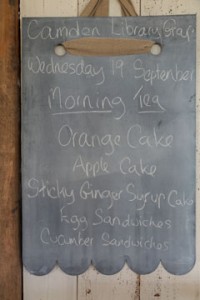 Camden Library Staff
Wednesday 19 September
Morning Tea
Orange Cake
Apple Cake
Sticky Ginger Syrup Cake
Egg Sandwiches
Cucumber Sandwiches